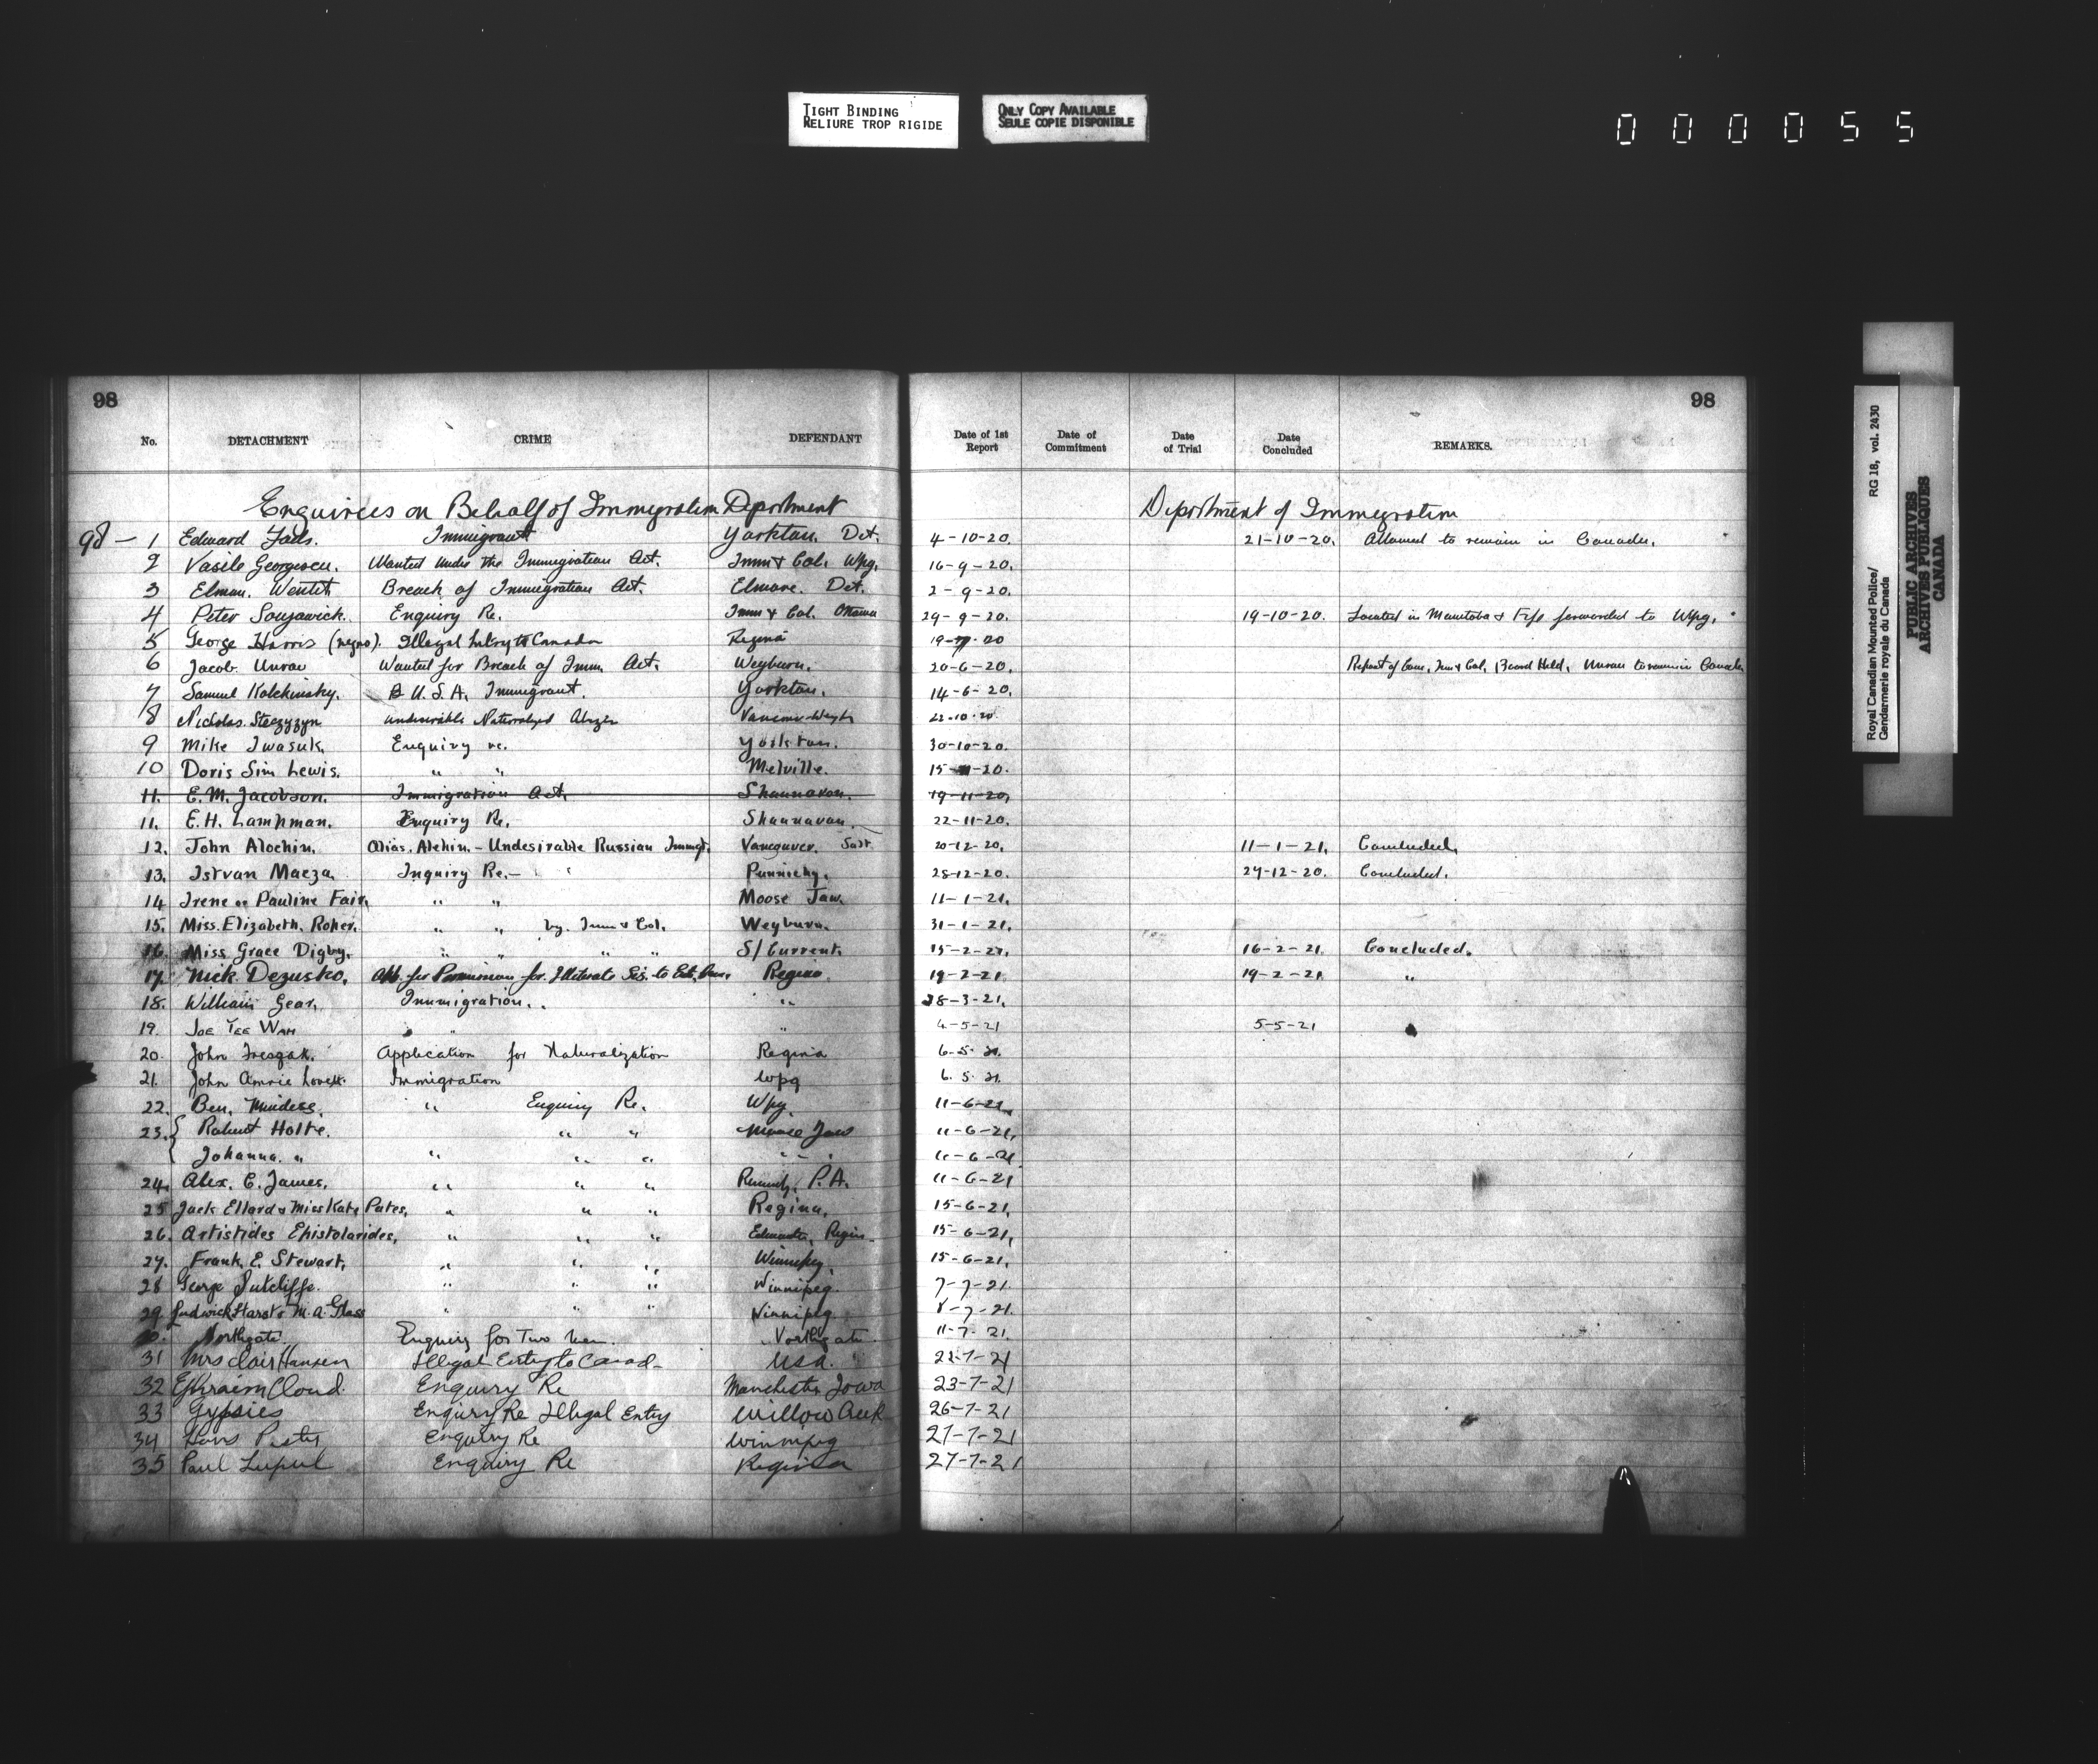 TIGHT BINDING
RELIURE TROP RIGIDE
ONLY COPY AVAILABLE
SEULE COPIE DISPONIBLE
000055
98
No. DETACHMENT CRIME DEFENDANT
Enquiries on Behalf of Immigration Department
98 — 1 Edward Immigrant Yorkton. Det.
2 Vasile Georgescu. Wanted under the Immigration Act. Imm & Col. Wpg.
3 Elman. Breach of Immigration Act. Elmore. Det.
4 Peter Enquiry Re. Imm & Col. Ottawa
5 George Harris (negro). Illegal Entry to Canada Regina
6 Jacob. Unrau Wanted for Breach of Imm. Act. Weyburn.
7 Samuel Kolchinsky. U.S.A. Immigrant. Yorkton.
8 Nicholas. undesirable Naturalized
9 Mike Iwasuk. Enquiry re. Yorkton.
10 Doris Sim Lewis. " " Melville.
11. E.M. Jacobson. Immigration Act. Shaunavon.
11. E.H. Lampman. Enquiry Re. Shaunavon.
12. John Alochin. Alias. Alehin. - Undesirable Russian Immgt. Vancouver. Sask
13. Istvan Maeza Inquiry Re. — Punnichy.
14 Irene or Pauline Fair. " " Moose Jaw.
15. Miss. Elizabeth. Roper. " " by. Imm & Col. Weyburn.
16. Miss. Grace Digby. " " " " S/Current.
17. Nick Dezusko. App. for Permission for. Illiterate Sis. to Regina
18. William Gear. Immigration. "
19. JOE TEE WAH " "
20. John Application for Naturalization Regina
21. John Amrie Lovett. Immigration Wpg
22. Ben. Mindess. " Enquiry Re. Wpg.
23. { Robert Holte. " " Moose Jaw
Johanna. " " " " "
24. Alex. C. James. " " " P.A.
25 Jack Ellard & Miss Kate Pates. " " " Regina.
26. Artistides Epistolarides. " " " Regin
27. Frank. E. Stewart. " " " Winnipeg.
28 George Sutcliffe. " " " Winnipeg.
29. Ludwick & M.A. Glass " " " Winnipeg.
30. Northgate. Enquiry for Two men. Northgate.
31 Mrs Clair Hansen Illegal Entry to Canad- USA.
32 Ephraim Cloud. Enquiry Re Manchester Iowa
33 Gypsies Enquiry Re Illegal Entry Willow Creek
34 Hans Enquiry Re Winnipeg
35 Paul Lupul Enquiry Re Regina
98
Date of 1st Report Date of Commitment Date of Trial Date Concluded REMARKS.
Department of Immigration
4-10-20. 21-10-20. Allowed to remain in Canada.
16-9-20.
2-9-20.
29-9-20. 19-10-20. Located in Manitoba & File forwarded to Wpg.
20-6-20. Report of Com. Imm & Col. Board Held. Unrau to remain in Canada
14-6-20.
22-10-20
30-10-20.
15-11-20.
19-11-20.
22-11-20.
20-12-20. 11-1-21. Concluded.
28-12-20. 29-12-20. Concluded.
11-1-21.
31-1-21.
15-2-21. 16-2-21. Concluded.
19-2-21. 19-2-21. "
28-3-21.
4-5-21 5-5-21
6-5-21.
6.5.21.
11-6-21.
11-6-21.
11-6-21.
11-6-21
15-6-21.
15-6-21.
15-6-21.
7-7-21.
8-7-21.
11-7-21.
22-7-21
23-7-21
26-7-21
27-7-21
27-7-21
Royal Canadian Mounted Police/ RG 18, vol. 2430
Gendarmerie royale du Canada
PUBLIC ARCHIVES
ARCHIVES PUBLIQUES
CANADA